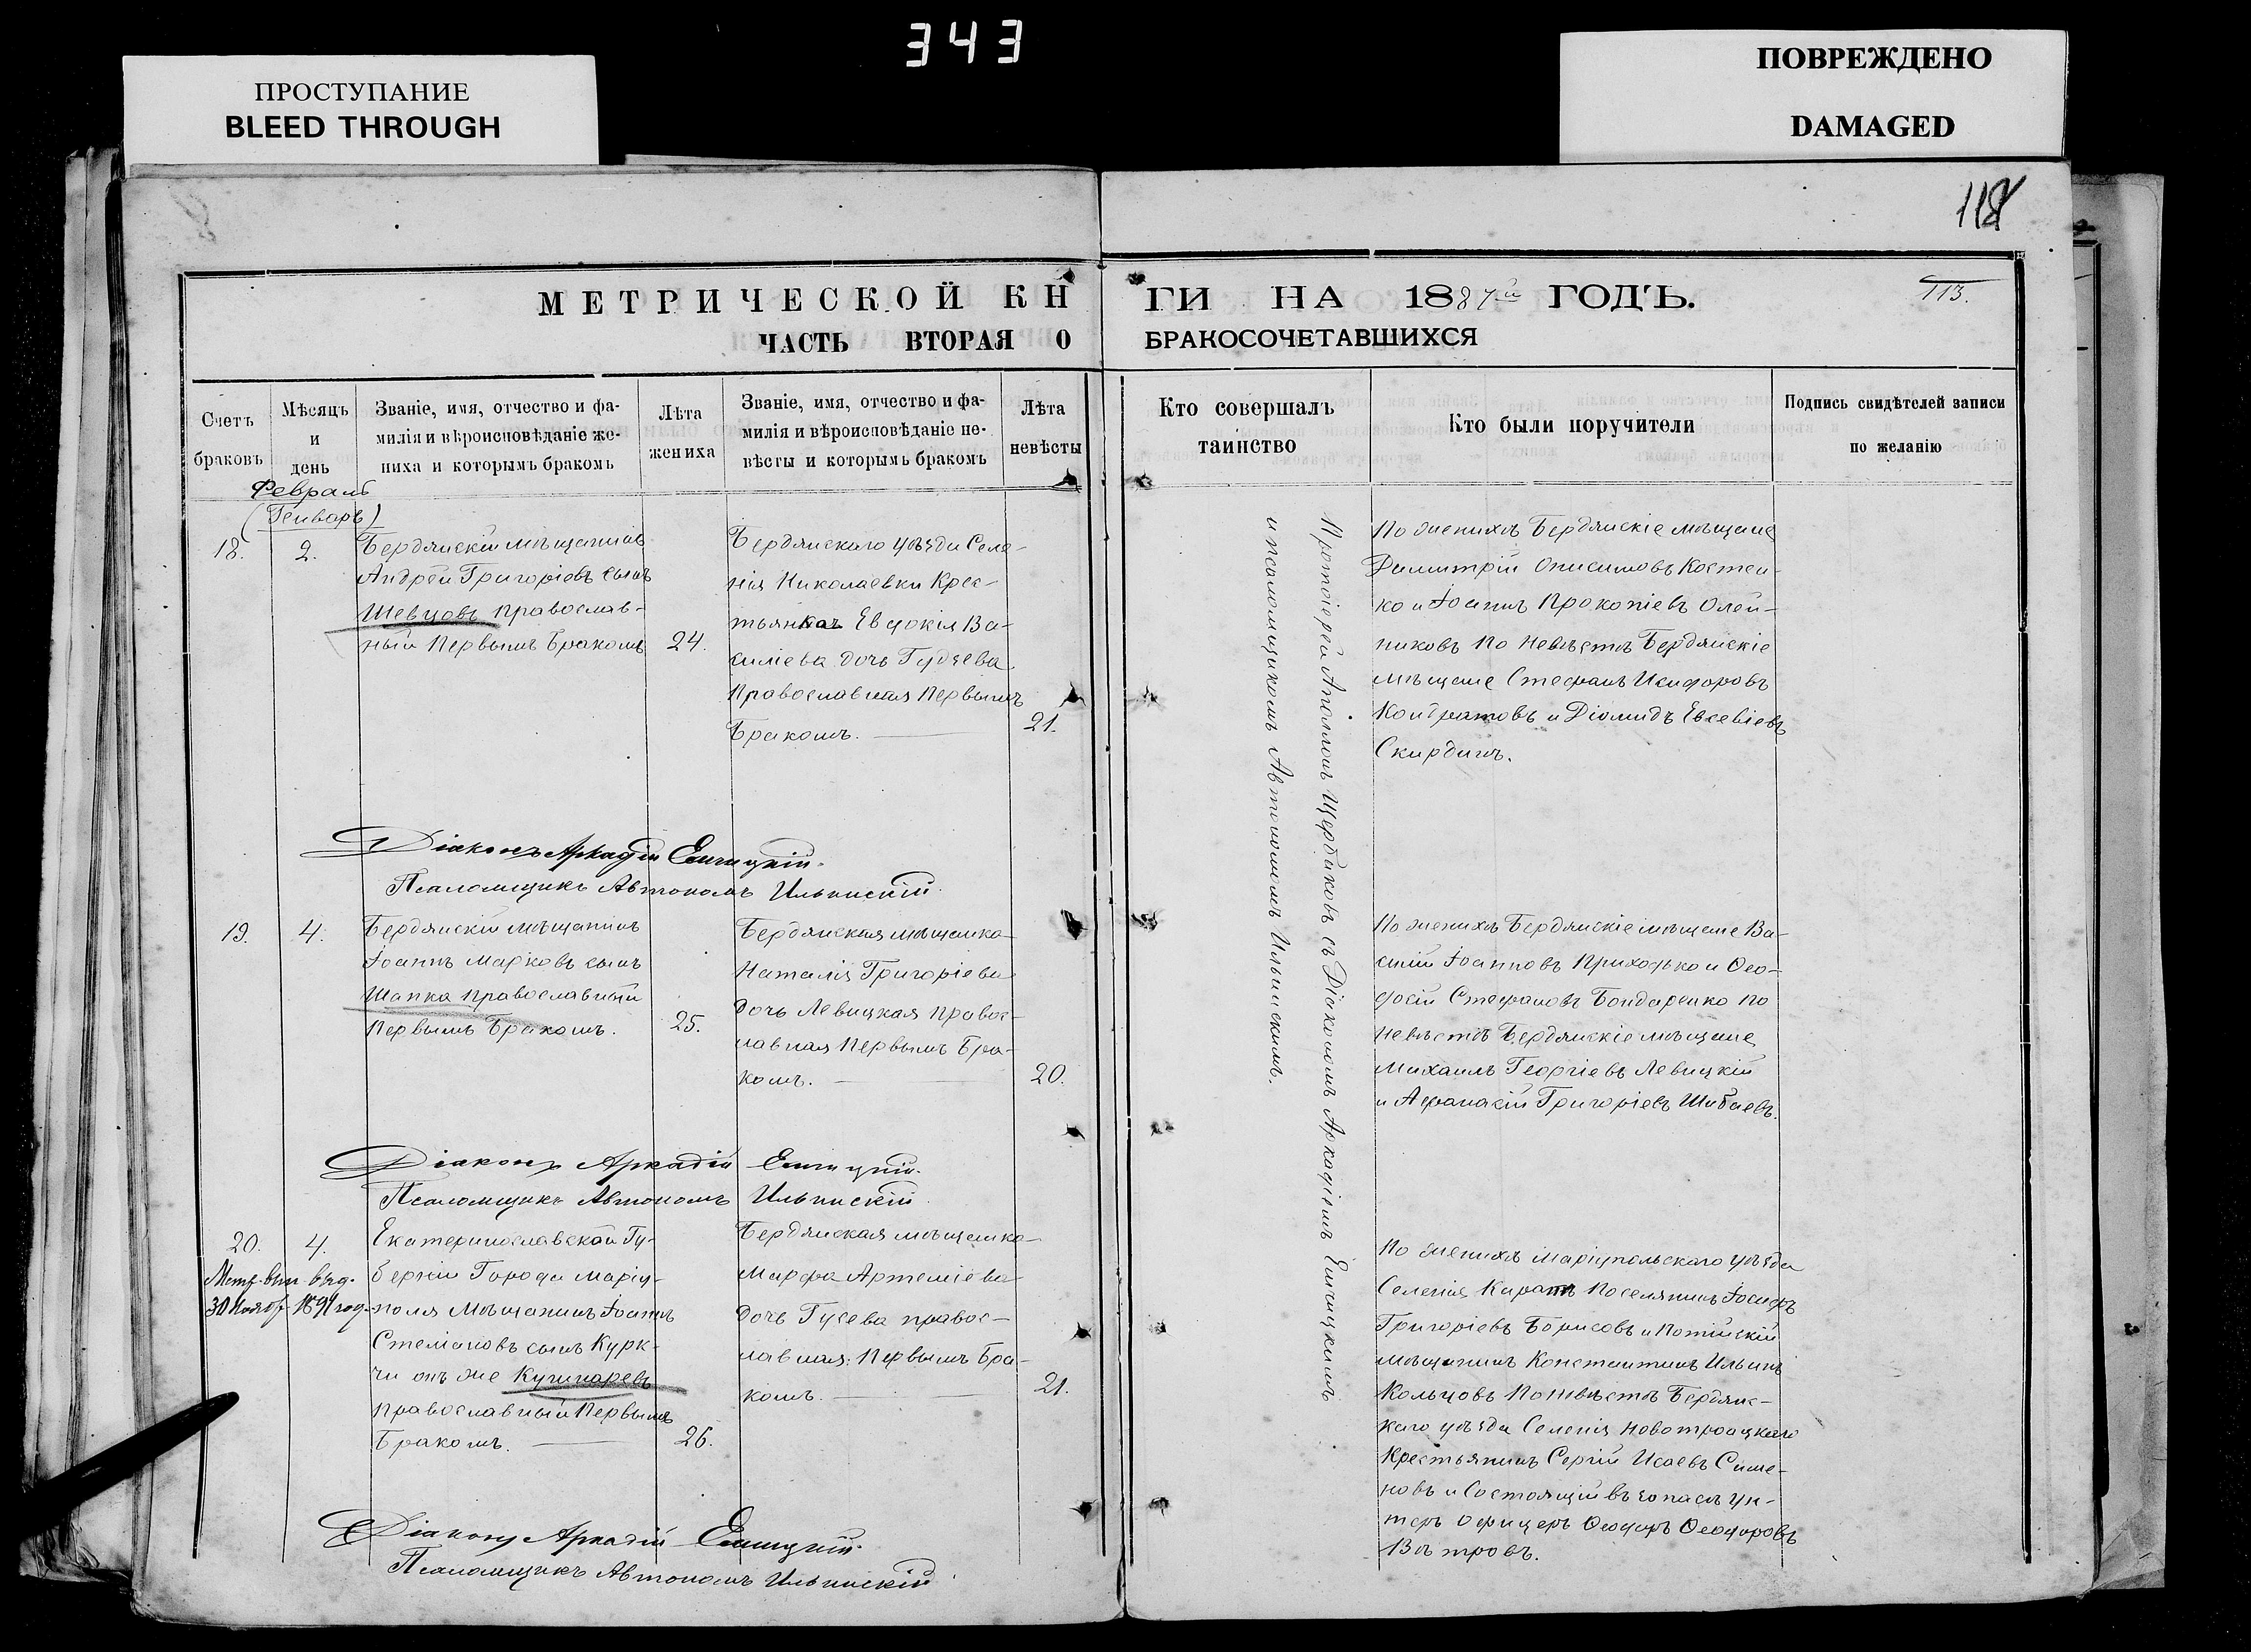 343
ПРОСТУПАНИЕ
BLEED THROUGH
ПОВРЕЖДЕНО
DAMAGED
118
113.
МЕТРИЧЕСКОЙ КН
ЧАСТЬ ВТОРАЯ О
ГИ НА 1887й ГОДЪ.
БРАКОСОЧЕТАВШИХСЯ
Счетъ
браковъ
Мѣсяцъ
и
день
Званіе, имя, отчество и фа-
милія и вѣроисповѣданіе же-
ниха и которымъ бракомъ
Лѣта
жениха
Званіе, имя, отчество и фа-
милія и вѣроисповѣданіе не-
вѣсты и которымъ бракомъ
Лѣта
невѣсты
Кто совершалъ
таинство
Кто были поручители
Подпись свидѣтелей записи
по желанію
Февраль
(Генварь)
18.
2.
Бердянскій мѣщанинъ
Андрей Григоріевъ сынъ
Шевцовъ православ-
ный Первымъ Бракомъ
24.
Бердянскаго уѣзда Селе-
нія Николаевки Крес-
тьянка Евдокія Ва-
силіева дочь Гудзева
Православная Первымъ
Бракомъ.
21.
По женихѣ Бердянскіе мѣщане
Димитрій Онисимовъ Костен-
ко и Іоаннъ Прокопіевъ Олей-
никовъ По Невѣстѣ Бердянскіе
мѣщане Стефанъ Никифоровъ
Кондратовъ и Діомидъ Евсевіевъ
Скирдинъ.
Діаконъ Аркадій Енчицкій.
Псаломщикъ Автономъ Ильинскій.
19.
4.
Бердянскій мѣщанинъ
Іоаннъ Марковъ сынъ
Шапка православный
Первымъ Бракомъ.
25.
Бердянская мѣщанка
Наталія Григоріева
дочь Левицкая правос-
лавная Первымъ Бра-
комъ.
20.
По женихѣ Бердянскіе мѣщане Ва-
силій Іоанновъ Приходько и Ѳео-
досій Стефановъ Бондаренко По
Невѣстѣ Бердянскіе мѣщане
Михаилъ Георгіевъ Левицкій
и Афанасій Григоріевъ Шибаевъ.
Діаконъ Аркадій Енчицкій.
Псаломщикъ Автономъ Ильинскій.
20.
4.
Метр. вып. выд.
30 Нояб. 1891 год.
Екатеринославской Гу-
берніи Города Маріу-
поля Мѣщанинъ Іоаннъ
Стеліановъ сынъ Курк-
чи онъ же Кушнаревъ
православный Первымъ
Бракомъ.
26.
Бердянская мѣщанка
Марфа Артеміева
дочь Гусева правос-
лавная: Первымъ Бра-
комъ.
21.
По женихѣ Маріупольскаго уѣзда
Селенія Карань Поселянинъ Іосифъ
Григоріевъ Борисовъ и Потійскій
мѣщанинъ Константинъ Ильинъ
Кольцовъ По невѣстѣ Бердянс-
каго уѣзда Селенія Новотроицкаго
Крестьянинъ Сергій Исаевъ Симе-
новъ и Состоящій въ запасѣ Ун-
теръ Офицеръ Ѳеодоръ Ѳеодоровъ
Вѣтровъ.
Діаконъ Аркадій Енчицкій.
Псаломщикъ Автономъ Ильинскій.
Протоіерей Аполлонъ Щербаковъ съ Діакономъ Аркадіемъ Енчицкимъ
и псаломщикомъ Автономомъ Ильинскимъ.